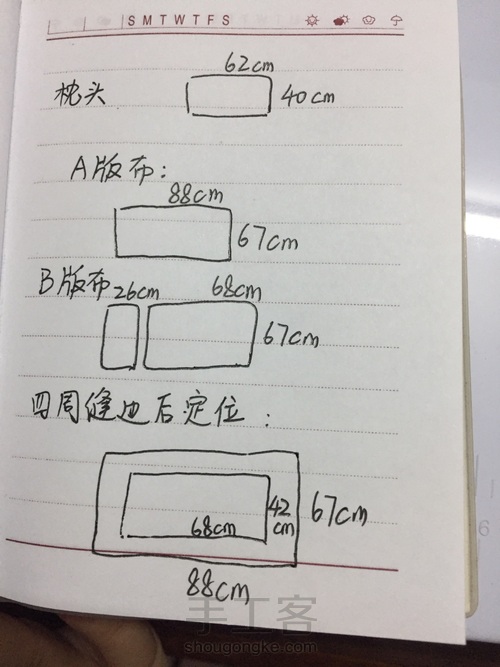 SMTWTFS
62cm
枕头 40cm
A版布:
88cm
67cm
B版布 26cm 68cm
67cm
四周缝边后定位:
42
68cm cm 67cm
88cm
手工客
shougongke.com